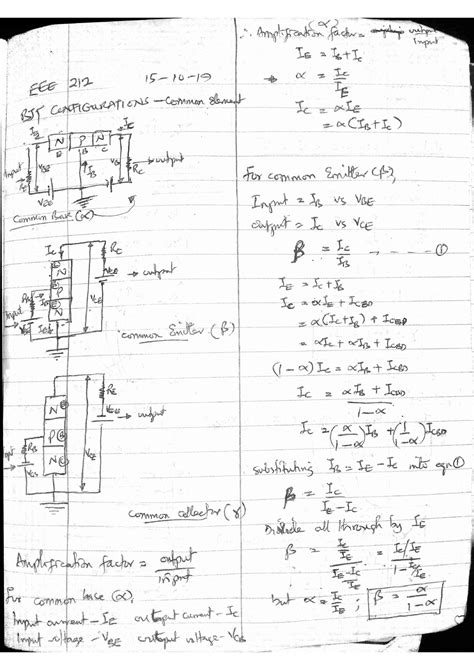 EEE 212 15-10-19
BJT CONFIGURATIONS - Common Element
IE IC
N P N
E B C
Input VBE IB VCB RC output
VEE VCC
Common Base (α)
IC RC
N
P
N
RB IB VCE VCC → output
Input IE
common Emitter (β)
N
P
N
RE
RB VCE VEE → output
common collector (γ)
Amplification factor = output
input
For common base (α),
Input current - IE output current - IC
Input voltage - VBE output voltage - VCB
∴ Amplification factor (α) = output
Input
IE = IB + IC
⇒ α = IC
IE
IC = αIE
= α(IB + IC)
For common Emitter (β),
Input = IB vs VBE
output = IC vs VCE
β = IC ------ ①
IB
IE = IC + IB
IC = αIE + ICBO
= α(IC + IB) + ICBO
= αIC + αIB + ICBO
(1-α)IC = αIB + ICBO
IC = αIB + ICBO
1-α
IC = (α/1-α)IB + (1/1-α)ICBO
substituting IB = IE - IC into eqn ①
β = IC
IE - IC
Divide all through by IE
β = IC/IE = IC/IE
IE-IC/IE 1-IC/IE
but α = IC/IE ; β = α/1-α